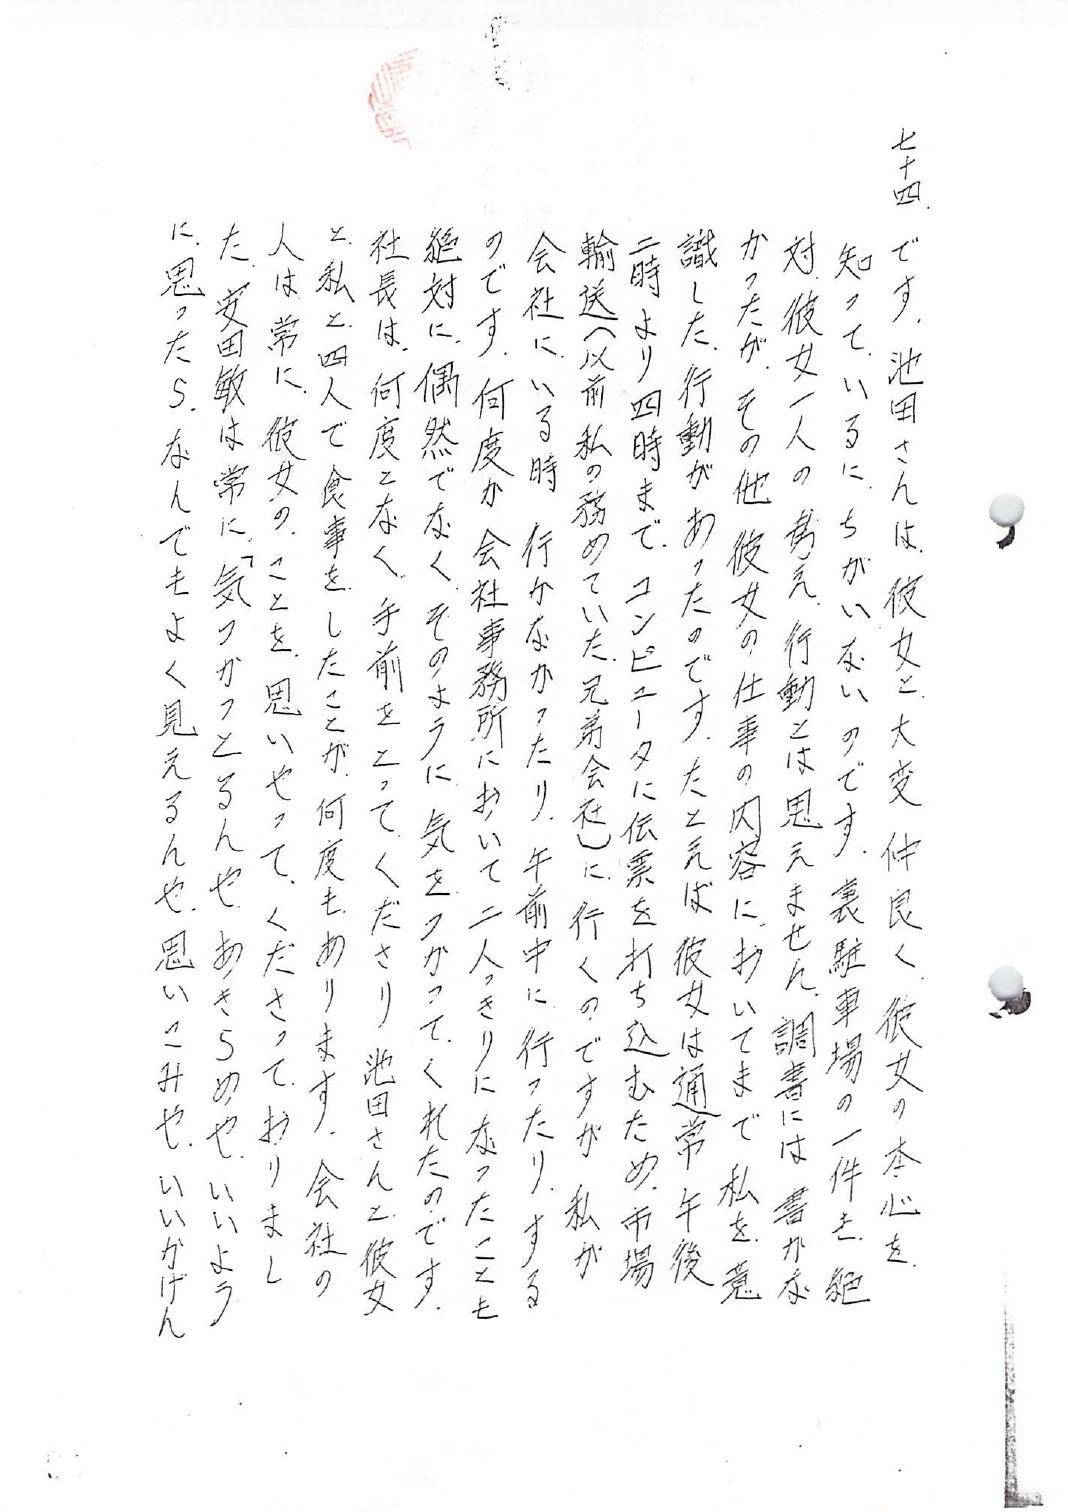 七十四.
です. 池田さんは. 彼女と. 大変 仲良く. 彼女の本心を.
知って. いるに. ちがいないのです. 裏駐車場の一件も. 絶
対. 彼女一人の 考え. 行動とは思えません. 調書には 書かな
かったが. その他 彼女の仕事の内容に. おいてまで 私を. 意
識した. 行動が あったのです. たとえば 彼女は通常 午後
二時より四時まで. コンピュータに伝票を打ち込むため. 市場
輸送(以前 私の務めていた. 兄弟会社)に. 行くのですが 私が
会社に. いる時 行かなかったり. 午前中に. 行ったり. する
のです. 何度か 会社事務所において 二人っきりに なったことも
絶対に. 偶然でなく. そのように. 気をつかって. くれたのです.
社長は. 何度となく. 手前をとって. くださり 池田さんと. 彼女
と. 私と. 四人で 食事を. したことが. 何度も. あります. 会社の
人は. 常に. 彼女の. ことを. 思いやって. くださって. おりまし
た. 安田敏は常に.「気つかっとるんや. あきらめや. いいよう
に. 思ったら. なんでもよく見えるんや. 思いこみや. いいかげん